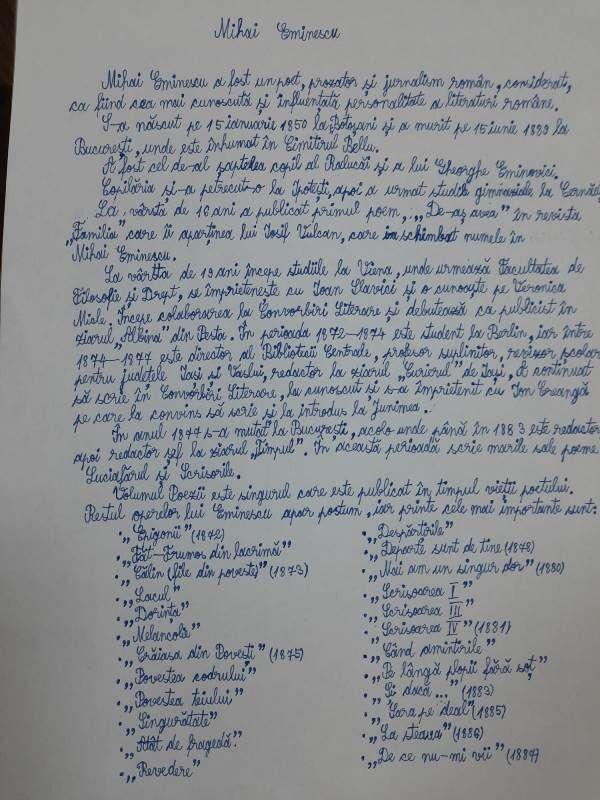 Mihai Eminescu
Mihai Eminescu a fost un poet, prozator și jurnalism român, considerat,
ca fiind cea mai cunoscută și influentată personalitate a literaturi române.
S-a născut pe 15 ianuarie 1850 la Botoșani și a murit pe 15 iunie 1889 la
București, unde este înhumat în Cimitirul Bellu.
A fost cel de-al șaptelea copil al Ralucăi și a lui Gheorghe Eminovici.
Copilăria și-a petrecut-o la Ipotești, apoi a urmat studii gimnaziale la Cernăuți
La vârsta de 16 ani a publicat primul poem, „De-aș avea" în revista
„Familia" care îi aparținea lui Iosif Vulcan, care ia schimbat numele în
Mihai Eminescu.
La vârtta de 19 ani începe studiile la Viena, unde urmează Facultatea de
Filosofie și Drept, se împrietenește cu Ioan Slavici și o cunoște pe Veronica
Micle. Începe colaborarea la Convorbiri Literare și debutează ca publicist în
ziarul "Albina" din Pesta. În perioada 1872-1874 este student la Berlin, iar între
1874-1877 este director al Bibliotecii Centrale, profesor suplinitor, revizor școlar
pentru județele Iasi și Vaslui, redactor la ziarul „Curierul" de Iași, A continuat
să scrie în Convorbiri Literare, la cunoscut si s-a împrietenit cu Ion Creangă
pe care la convins să scrie și la introdus la Junimea.
În anul 1877 s-a mutat la București, acolo unde până în 1883 este redactor
apoi redactor șef la ziarul „Timpul". În această perioadă scrie marile sale poeme
Luciafărul și Scrisorile.
Volumul Poezii este singurul care este publicat în timpul vieții poetului.
Restul operelor lui Eminescu apar postum, iar printe cele mai importante sunt:
• „Epigonii" (1872)
• „Făt-Frumos din lacrimă"
• „Călin (file din poveste)" (1873)
• „Lacul"
• „Dorința"
• „Melancolă"
• „Crăiasa din Povești" (1875)
• „Povestea codrului"
• „Povestea teiului"
• „Singurătate"
• „Atât de fragedă."
• „Revedere"
• „Despărțirile"
• „Departe sunt de tine (1878)
• „Mai am un singur dor" (1880)
• „Scrisoarea I"
• „Scrisoarea III"
• „Scrisoarea IV" (1881)
• „Când amintirile"
• „Pe lângă plopii fără soț"
• „Și dacă ..." (1883)
• „Sara pe deal" (1885)
• „La steaua" (1886)
• „De ce nu-mi vii" (1887)